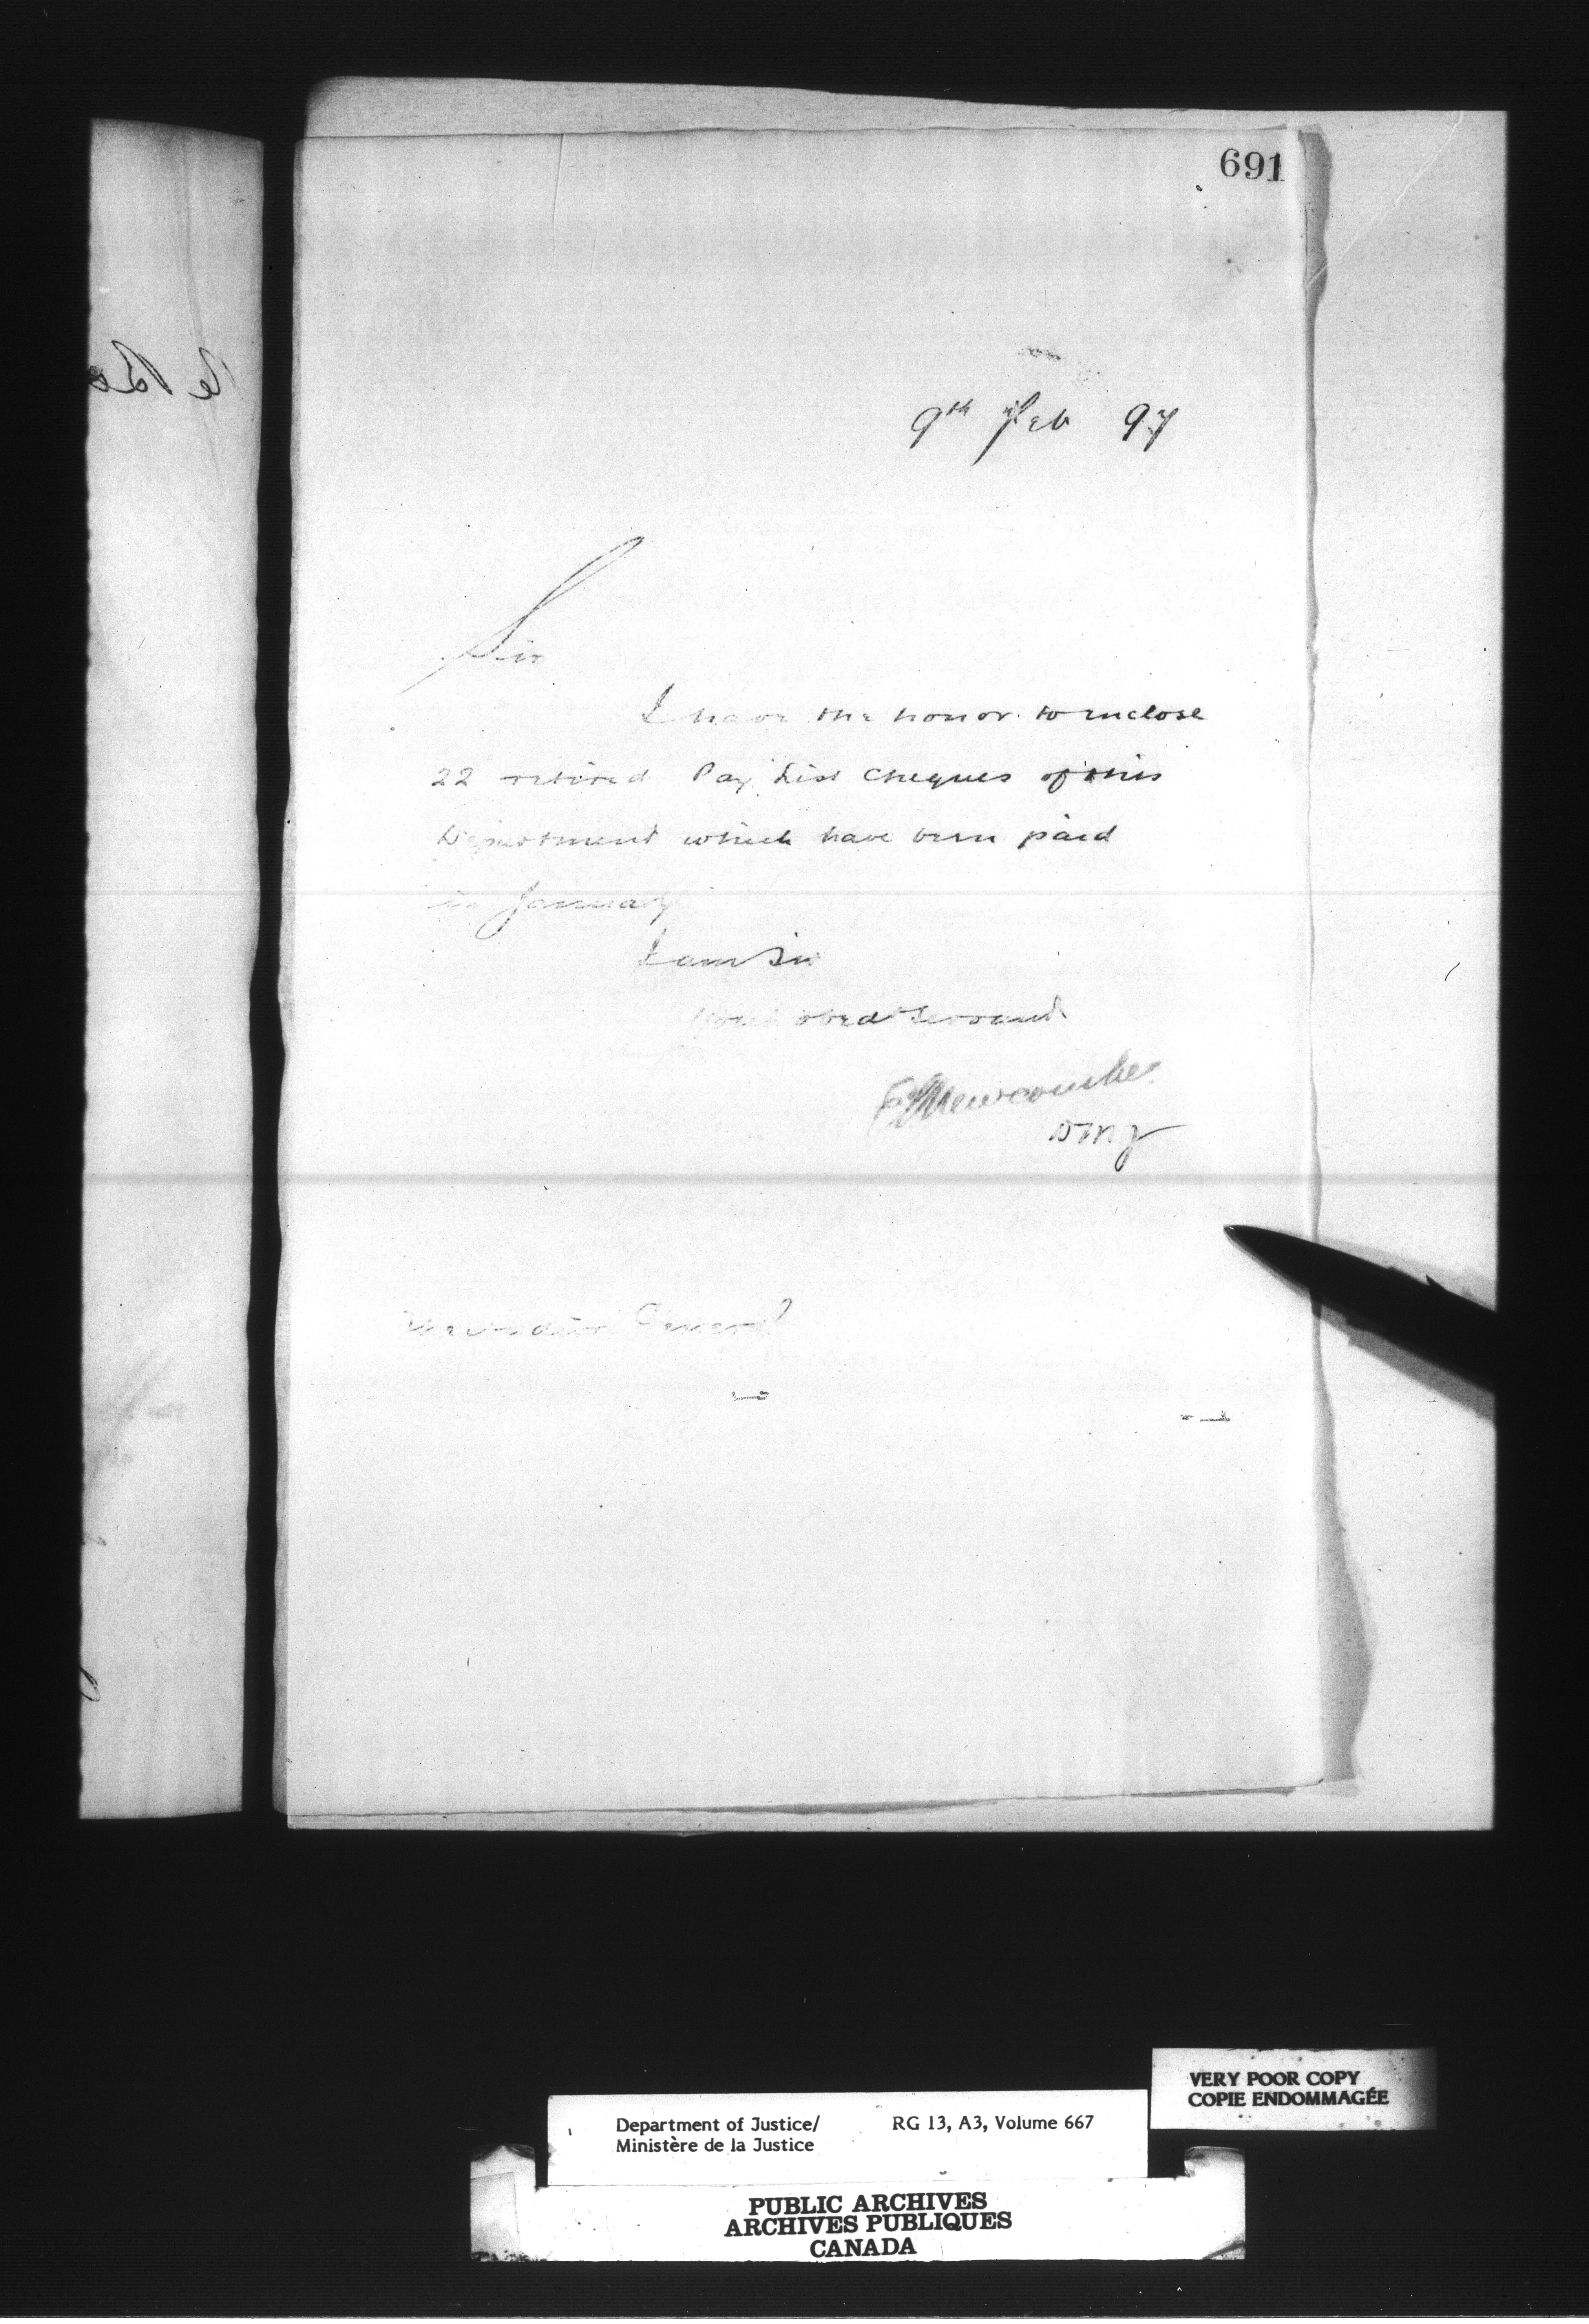 691
9th Feb 97
Sir
I have the honor to enclose
22 retired Pay List Cheques of this
Department which have been paid
in January
I am Sir
Your obedt Servant
E L Newcombe
DMJ
The Auditor General
VERY POOR COPY
COPIE ENDOMMAGÉE
Department of Justice/ RG 13, A3, Volume 667
Ministère de la Justice
PUBLIC ARCHIVES
ARCHIVES PUBLIQUES
CANADA